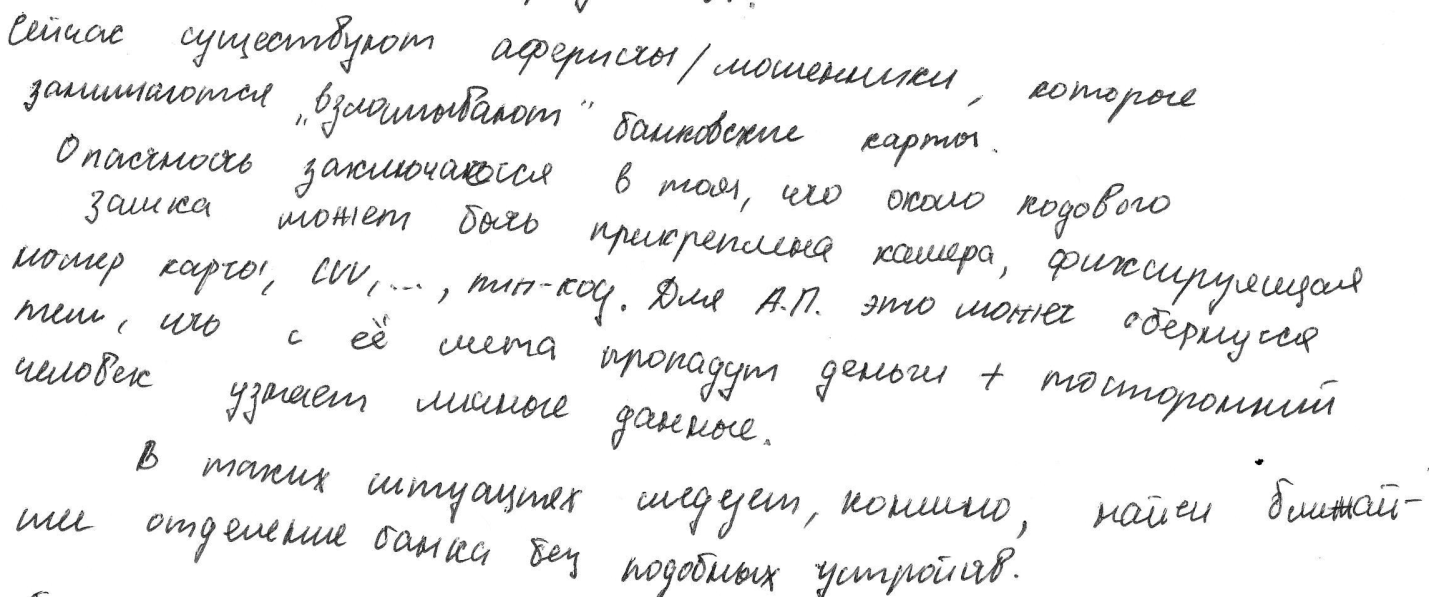 Сейчас существуют аферисты/мошенники, которые
занимаются „взламывают" банковские карты.
Опасность заключается в том, что около кодового
замка может быть прикреплена камера, фиксирующая
номер карты, CVV, ..., пин-код. Для А.П. это может обернуться
тем, что с её счета пропадут деньги + посторонний
человек узнает личные данные.
В таких ситуациях следует, конечно, найти ближай-
шее отделение банка без подобных устройств.